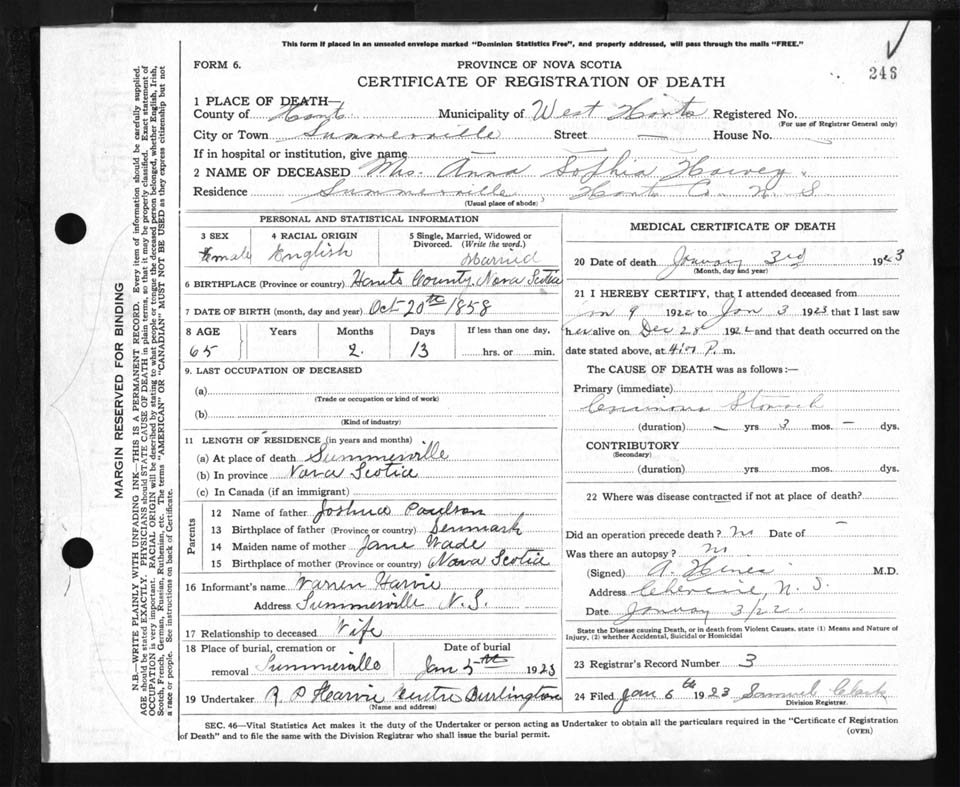 This form if placed in an unsealed envelope marked "Dominion Statistics Free", and properly addressed, will pass through the mails "FREE."
FORM 6.
PROVINCE OF NOVA SCOTIA
CERTIFICATE OF REGISTRATION OF DEATH
246
1 PLACE OF DEATH—
County of Hants Municipality of West Hants Registered No.
(For use of Registrar General only)
City or Town Summerville Street — House No.
If in hospital or institution, give name —
2 NAME OF DECEASED Mrs. Anna Sophia Harvey
Residence Summerville, Hants Co. N. S.
(Usual place of abode)
PERSONAL AND STATISTICAL INFORMATION
3 SEX Female
4 RACIAL ORIGIN English
5 Single, Married, Widowed or Divorced. (Write the word.) Married
6 BIRTHPLACE (Province or country) Hants County, Nova Scotia
7 DATE OF BIRTH (month, day and year) Oct 20th 1858
8 AGE Years Months Days If less than one day,
65 2 13 hrs. or min.
9. LAST OCCUPATION OF DECEASED
(a)
(Trade or occupation or kind of work)
(b)
(Kind of industry)
11 LENGTH OF RESIDENCE (in years and months)
(a) At place of death Summerville
(b) In province Nova Scotia
(c) In Canada (if an immigrant)
Parents
12 Name of father Joshua Paulson
13 Birthplace of father (Province or country) Denmark
14 Maiden name of mother Jane Wade
15 Birthplace of mother (Province or country) Nova Scotia
16 Informant's name Warren Harvie
Address Summerville N.S.
17 Relationship to deceased Wife
18 Place of burial, cremation or removal Summerville
Date of burial Jan 5th 1923
19 Undertaker R P Harvie Centre Burlington
(Name and address)
MEDICAL CERTIFICATE OF DEATH
20 Date of death January 3rd 1923
(Month, day and year)
21 I HEREBY CERTIFY, that I attended deceased from
9 1922 to Jan 3 1923 that I last saw
her alive on Dec 28 1922 and that death occurred on
date stated above, at P. m.
The CAUSE OF DEATH was as follows:—
Primary (immediate)
Stomach
(duration) — yrs 3 mos. — dys.
CONTRIBUTORY
(Secondary)
(duration) yrs. mos. dys.
22 Where was disease contracted if not at place of death?
Did an operation precede death? No Date of —
Was there an autopsy? No
(Signed) A. M.D.
Address N. S.
Date January 3/22.
State the Disease causing Death, or in death from Violent Causes. state (1) Means and Nature of
Injury, (2) whether Accidental, Suicidal or Homicidal
23 Registrar's Record Number 3
24 Filed Jan 6th 1923 Samuel Clark
Division Registrar.
SEC. 46—Vital Statistics Act makes it the duty of the Undertaker or person acting as Undertaker to obtain all the particulars required in the "Certificate of Registration
of Death" and to file the same with the Division Registrar who shall issue the burial permit.
(OVER)
MARGIN RESERVED FOR BINDING
N.B.—WRITE PLAINLY WITH UNFADING INK—THIS IS A PERMANENT RECORD. Every item of information should be carefully supplied.
AGE should be stated EXACTLY. PHYSICIANS should STATE CAUSE OF DEATH in plain terms, so that it may be properly classified. Exact statement of
OCCUPATION is very important. RACIAL ORIGIN will be described by stating to what people or tongue the deceased person belonged, whether English, Irish,
Scotch, French, German, Russian, Ruthenian, etc. The terms "AMERICAN" OR "CANADIAN" MUST NOT BE USED as they express citizenship but not
a race or people. See instructions on back of Certificate.